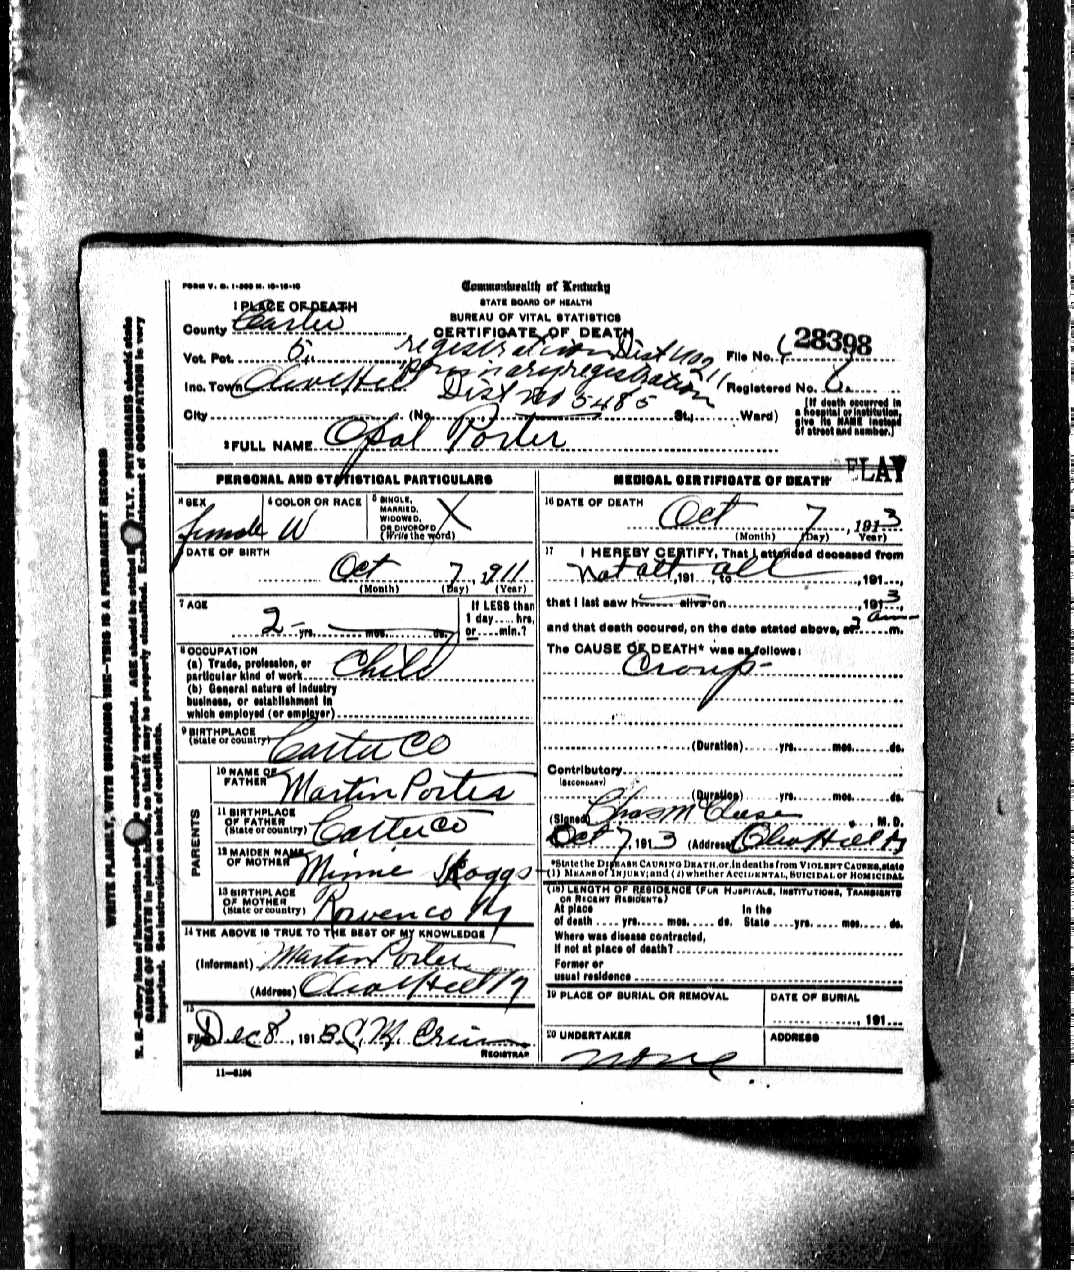 FORM V. S. 1-200 M. 10-10-10
Commonwealth of Kentucky
STATE BOARD OF HEALTH
BUREAU OF VITAL STATISTICS
CERTIFICATE OF DEATH
1 PLACE OF DEATH
County Carter
Vot. Pct. 5
registration Dist No 211
File No. 28398
Inc. Town Olive Hill
Primary registration
Dist No 5485
Registered No. 6.
City (No. St., Ward)
[If death occurred in a hospital or institution, give its NAME instead of street and number.]
2 FULL NAME Opal Porter
PERSONAL AND STATISTICAL PARTICULARS
3 SEX female
4 COLOR OR RACE W
5 SINGLE, MARRIED, WIDOWED, OR DIVORCED (Write the word) X
DATE OF BIRTH
Oct 7, 911
(Month) (Day) (Year)
7 AGE
2 yrs. mos. ds.
If LESS than 1 day.... hrs. or.....min.?
8 OCCUPATION
(a) Trade, profession, or particular kind of work Child
(b) General nature of industry
business, or establishment in
which employed (or employer)
9 BIRTHPLACE
(State or country) Carter Co
PARENTS
10 NAME OF FATHER Martin Porter
11 BIRTHPLACE OF FATHER
(State or country) Carter co
12 MAIDEN NAME OF MOTHER Minnie Skaggs
13 BIRTHPLACE OF MOTHER
(State or country) Rowen co Ky
14 THE ABOVE IS TRUE TO THE BEST OF MY KNOWLEDGE
(Informant) Martin Porter
(Address) Olive Hill Ky
15
Filed Dec 8, 1913 C. M. Crim
REGISTRAR
11—5194
MEDICAL CERTIFICATE OF DEATH
16 DATE OF DEATH
Oct 7, 1913
(Month) (Day) (Year)
17 I HEREBY CERTIFY, That I attended deceased from
not att, 191..., to all, 191...,
that I last saw h alive on, 1913,
and that death occured, on the date stated above, at 2 am m.
The CAUSE OF DEATH* was as follows:
Croup
(Duration)......yrs.......mos.......ds.
Contributory
(SECONDARY)
(Duration)......yrs.......mos.......ds.
(Signed) Chas M , M. D.
Oct 7, 1913 (Address) Olive Hill Ky
*State the DISEASE CAUSING DEATH, or, in deaths from VIOLENT CAUSES, state
(1) MEANS OF INJURY; and (2) whether ACCIDENTAL, SUICIDAL or HOMICIDAL
(18) LENGTH OF RESIDENCE (FOR HOSPITALS, INSTITUTIONS, TRANSIENTS
OR RECENT RESIDENTS)
At place In the
of death.....yrs......mos......ds. State.....yrs......mos......ds.
Where was disease contracted,
if not at place of death?
Former or
usual residence
19 PLACE OF BURIAL OR REMOVAL
DATE OF BURIAL
, 191...
20 UNDERTAKER
none
ADDRESS
WRITE PLAINLY, WITH UNFADING INK—THIS IS A PERMANENT RECORD